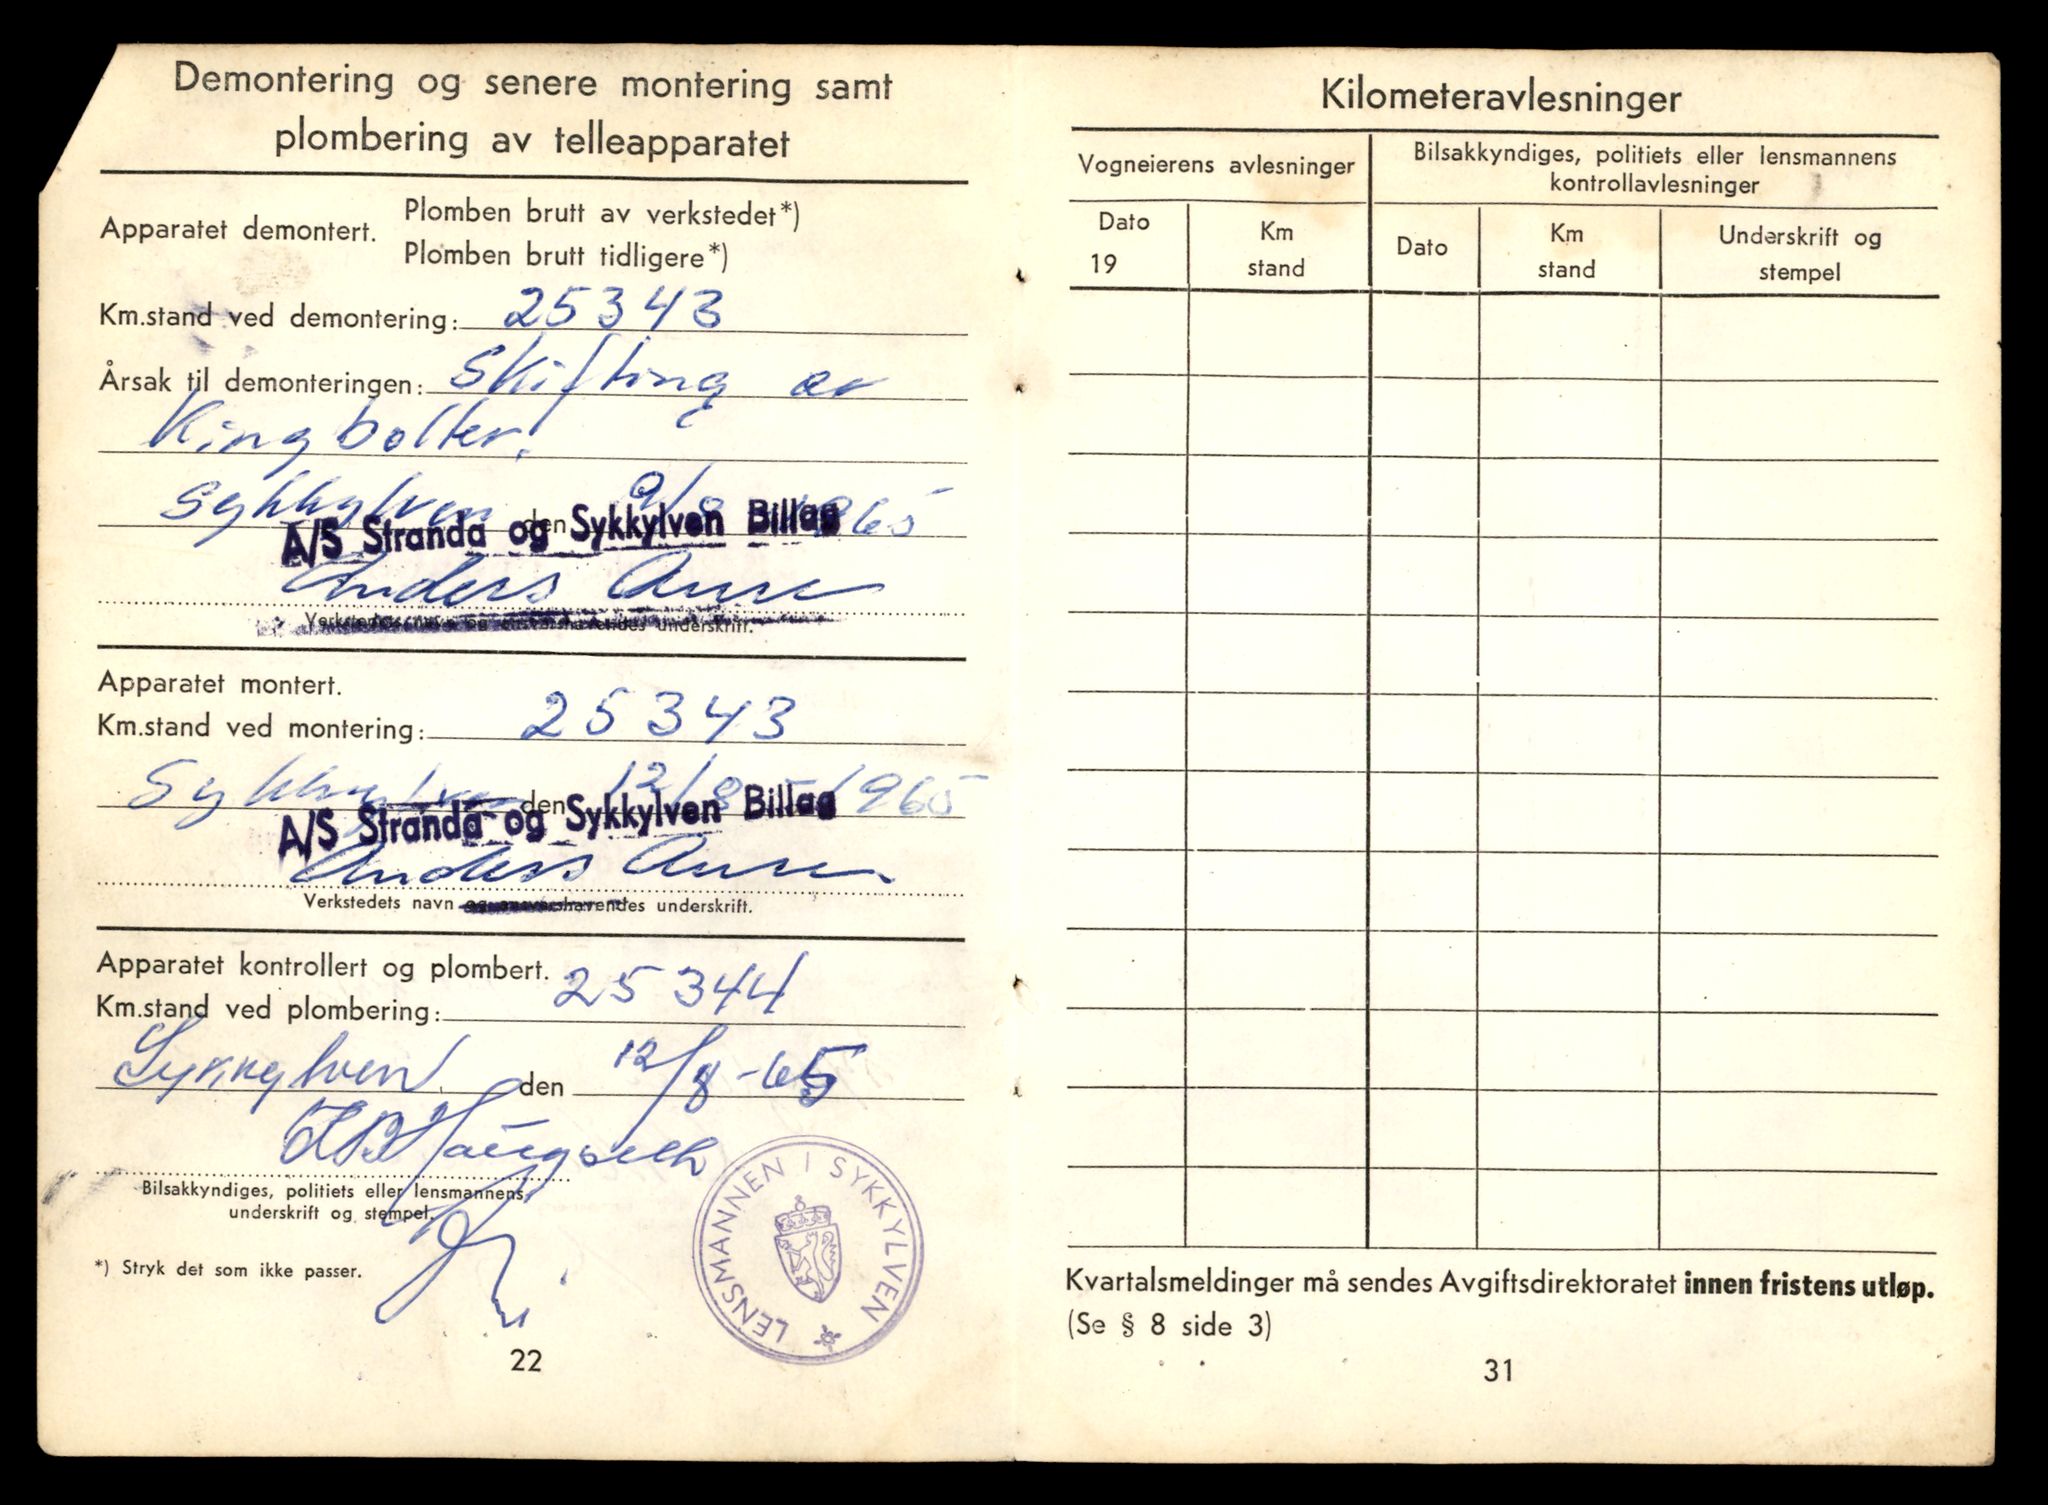 Demontering og senere montering samt
plombering av telleapparatet
Apparatet demontert.
Plomben brutt av verkstedet*)
Plomben brutt tidligere*)
Km.stand ved demontering: 25343
Årsak til demonteringen: Skifting av
Kingbolter.
Sykkylven den 9/8 1965
A/S Stranda og Sykkylven Billag
Anders Aure
Verkstedets navn og ansvarshavendes underskrift.
Apparatet montert.
Km.stand ved montering: 25343
Sykkylven den 12/8 1965
A/S Stranda og Sykkylven Billag
Anders Aure
Verkstedets navn og ansvarshavendes underskrift.
Apparatet kontrollert og plombert.
Km.stand ved plombering: 25344
Sykkylven den 12/8-65
Bilsakkyndiges, politiets eller lensmannens
underskrift og stempel.
LENSMANNEN I SYKKYLVEN
*) Stryk det som ikke passer.
22
Kilometeravlesninger
Vogneierens avlesninger
Bilsakkyndiges, politiets eller lensmannens
kontrollavlesninger
Dato
19
Km
stand
Dato
Km
stand
Underskrift og
stempel
Kvartalsmeldinger må sendes Avgiftsdirektoratet innen fristens utløp.
(Se § 8 side 3)
31